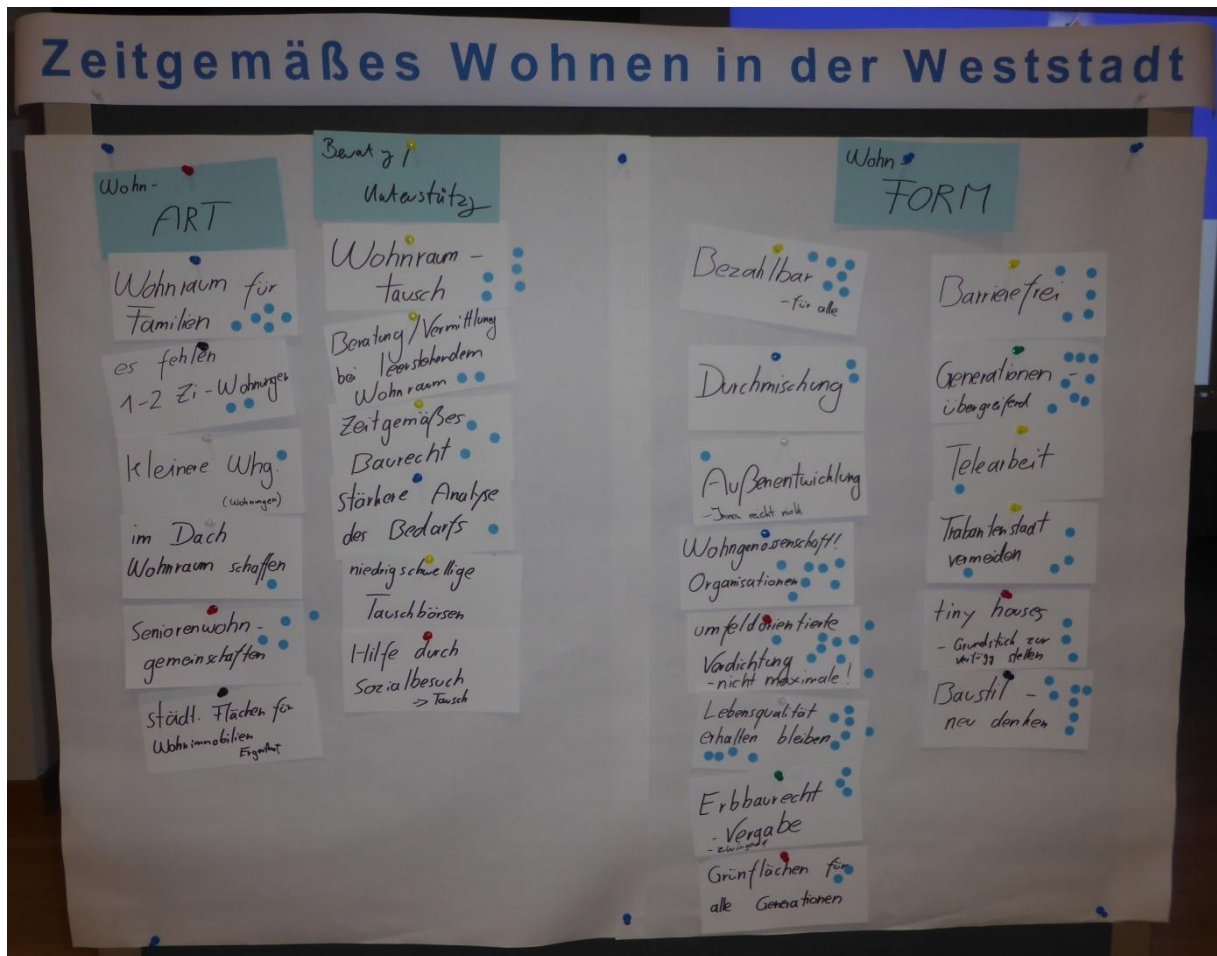 Zeitgemäßes Wohnen in der Weststadt
Wohn-
ART
Wohnraum für
Familien
es fehlen
1-2 Zi-Wohnungen
kleinere Whg.
(Wohnungen)
im Dach
Wohnraum schaffen
Seniorenwohn-
gemeinschaften
städt. Flächen für
Wohnimmobilien
Beratg /
Unterstützg
Wohnraum-
tausch
Beratung/Vermittlung
bei leerstehendem
Wohnraum
Zeitgemäßes
Baurecht
stärkere Analyse
des Bedarfs
niedrigschwellige
Tauschbörsen
Hilfe durch
Sozialbesuch
-> Tausch
Wohn
FORM
Bezahlbar
- für alle
Durchmischung
Außenentwicklung
- Innen reicht nicht
Wohngenossenschaft!
Organisationen
umfeldorientierte
Verdichtung
- nicht maximale!
Lebensqualität
erhalten bleiben
Erbbaurecht
- Vergabe
Grünflächen für
alle Generationen
Barrierefrei
Generationen-
übergreifend
Telearbeit
Trabantenstadt
vermeiden
tiny houses
- Grundstück zur
Verfügg stellen
Baustil -
neu denken